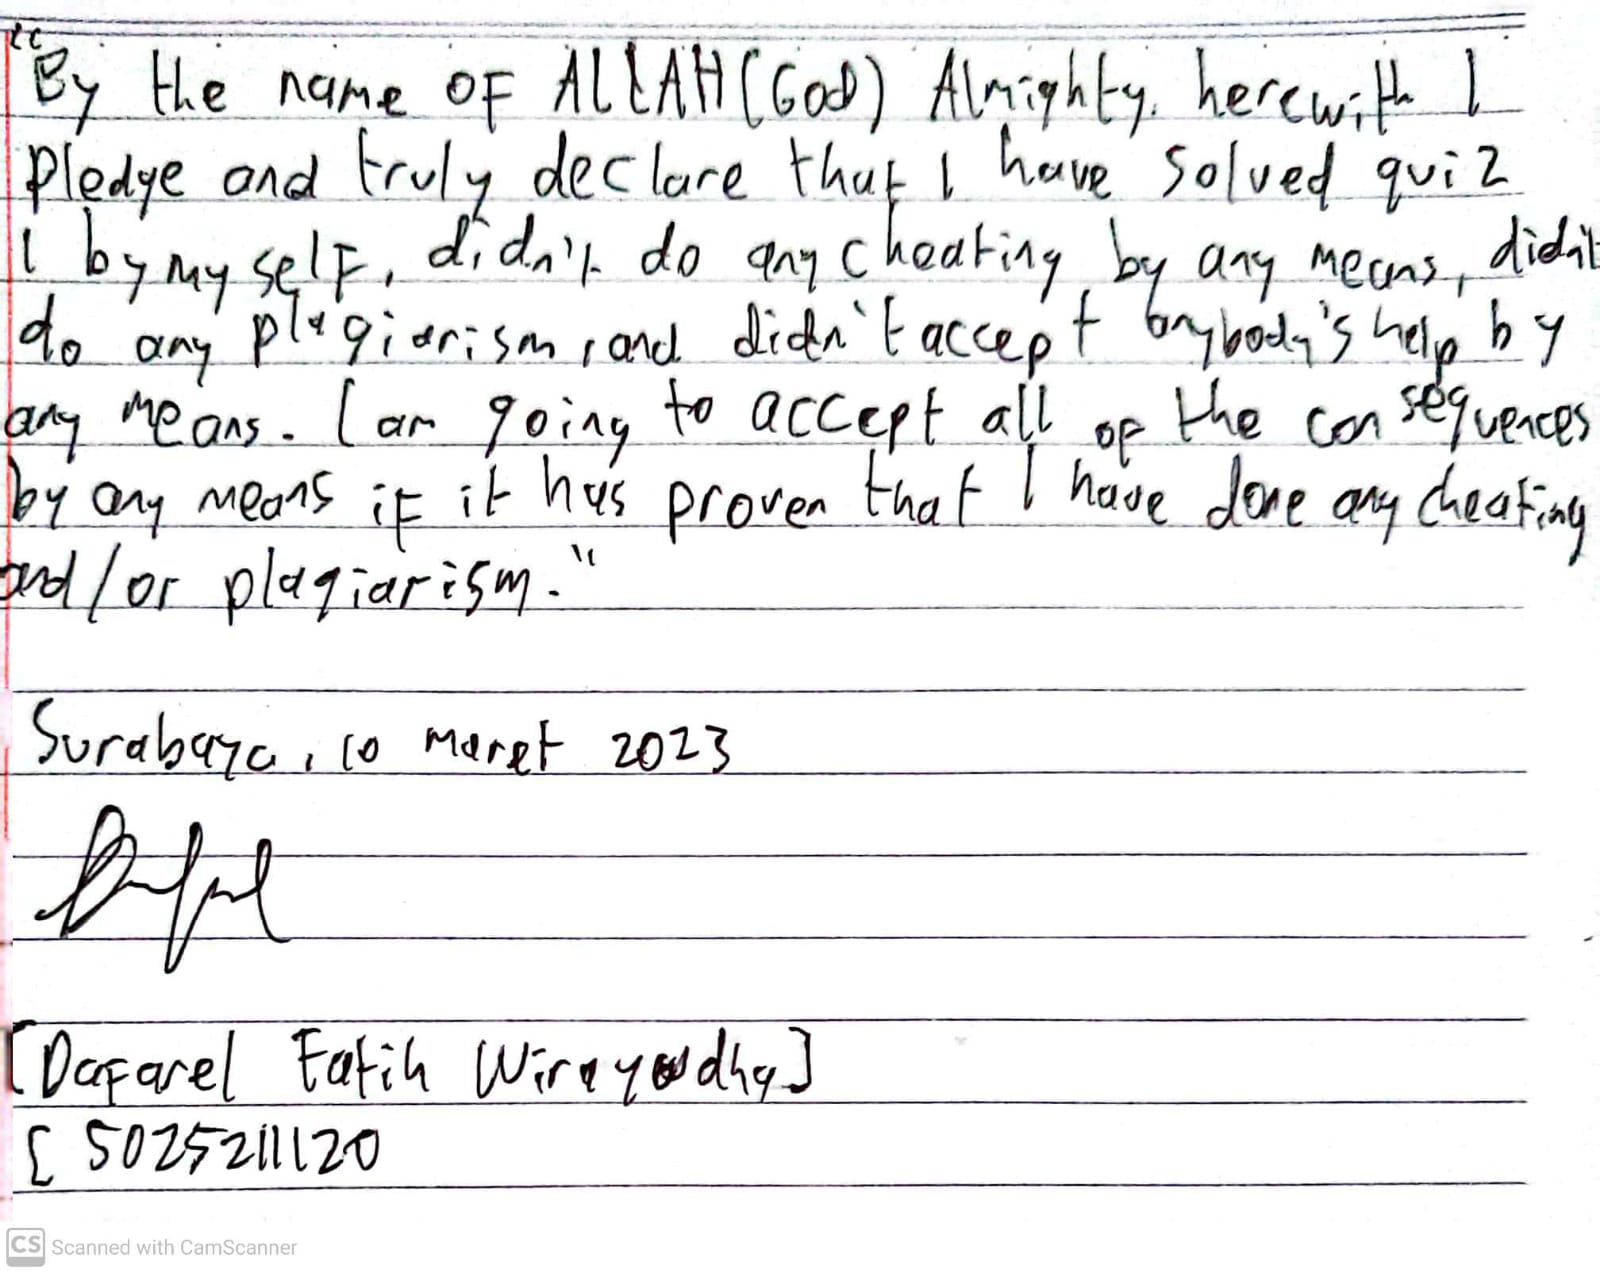 "By the name of ALLAH (God) Almighty. herewith I
pledge and truly declare that I have solved quiz
1 by myself, didn't do any cheating by any means, didn't
do any plagiarism, and didn't accept anybody's help by
any means. I am going to accept all of the consequences
by any means if it has proven that I have done any cheating
and/or plagiarism."
Surabaya, 10 Maret 2023
[Dafarel Fatih Wirayudha]
[ 5025211120
CS Scanned with CamScanner